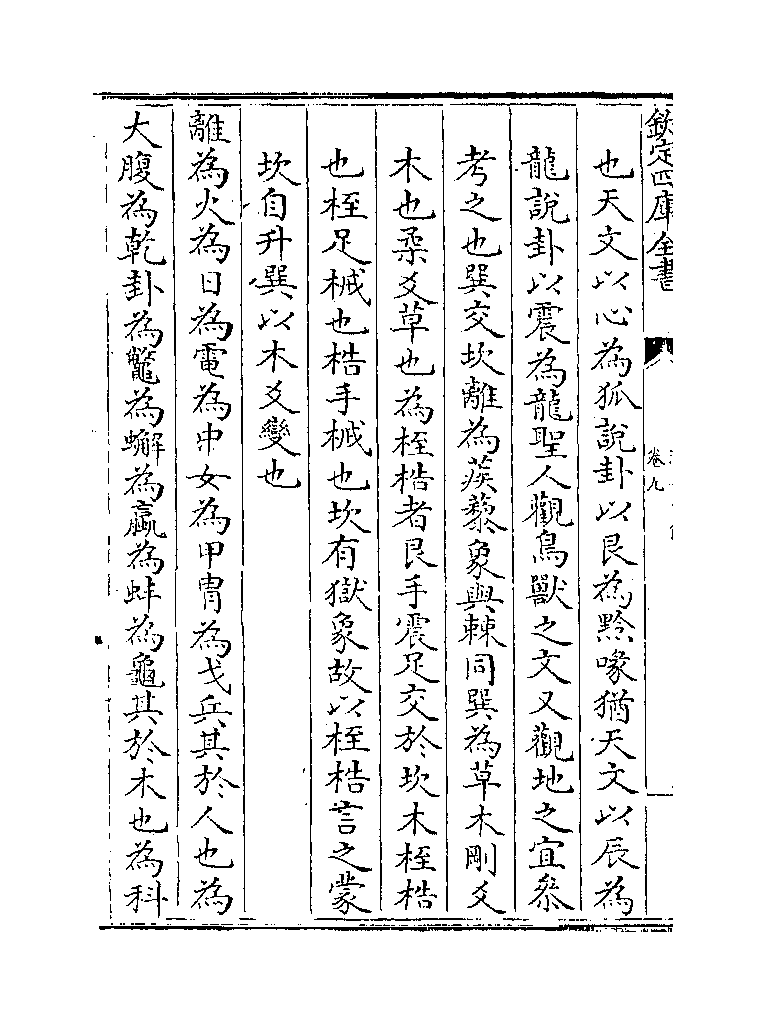 欽定四庫全書
卷九
也天文以心為狐說卦以艮為黔喙猶天文以辰為
龍說卦以震為龍聖人觀鳥獸之文又觀地之宜叅
考之也巽交坎離為蒺藜象與棘同巽為草木剛爻
木也柔爻草也為桎梏者艮手震足交於坎木桎梏
也桎足械也梏手械也坎有獄象故以桎梏言之蒙
坎自升巽以木爻變也
離為火為日為電為中女為甲冑為戈兵其於人也為
大腹為乾卦為鼈為蠏為蠃為蚌為龜其於木也為科